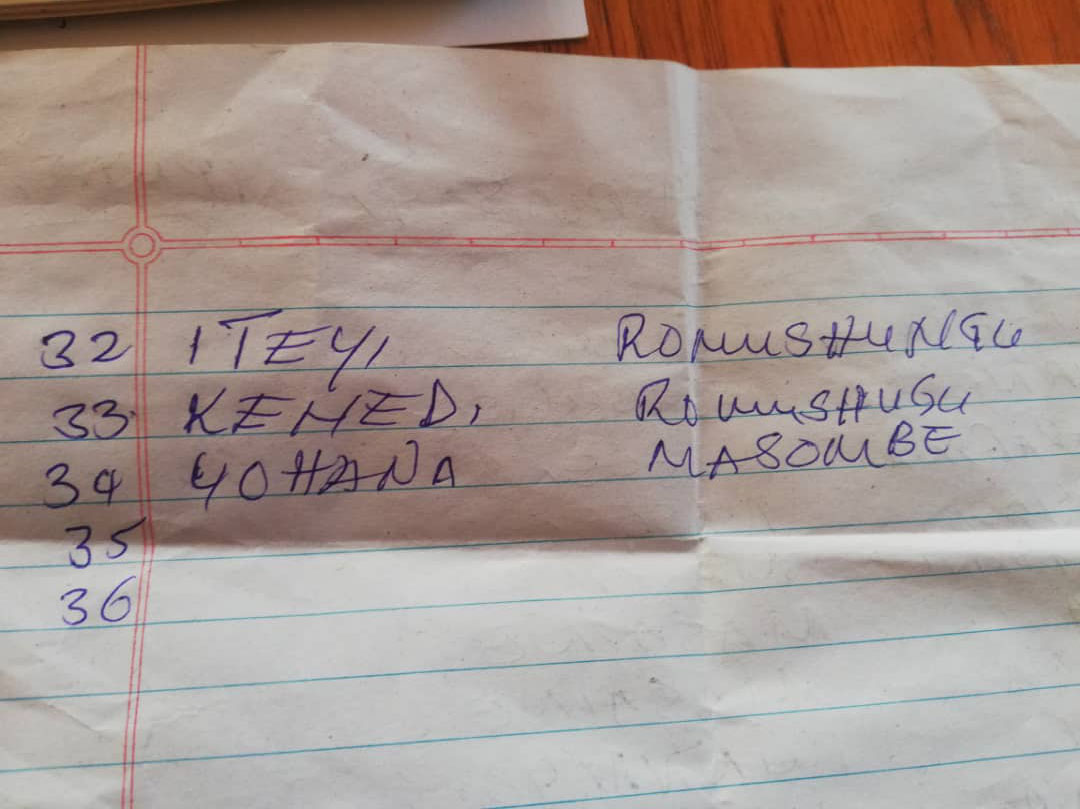 32 ITEYI ROMUSHUNGU
33 KEMEDI ROMUSHUGU
34 YOHANA MASOMBE
35
36